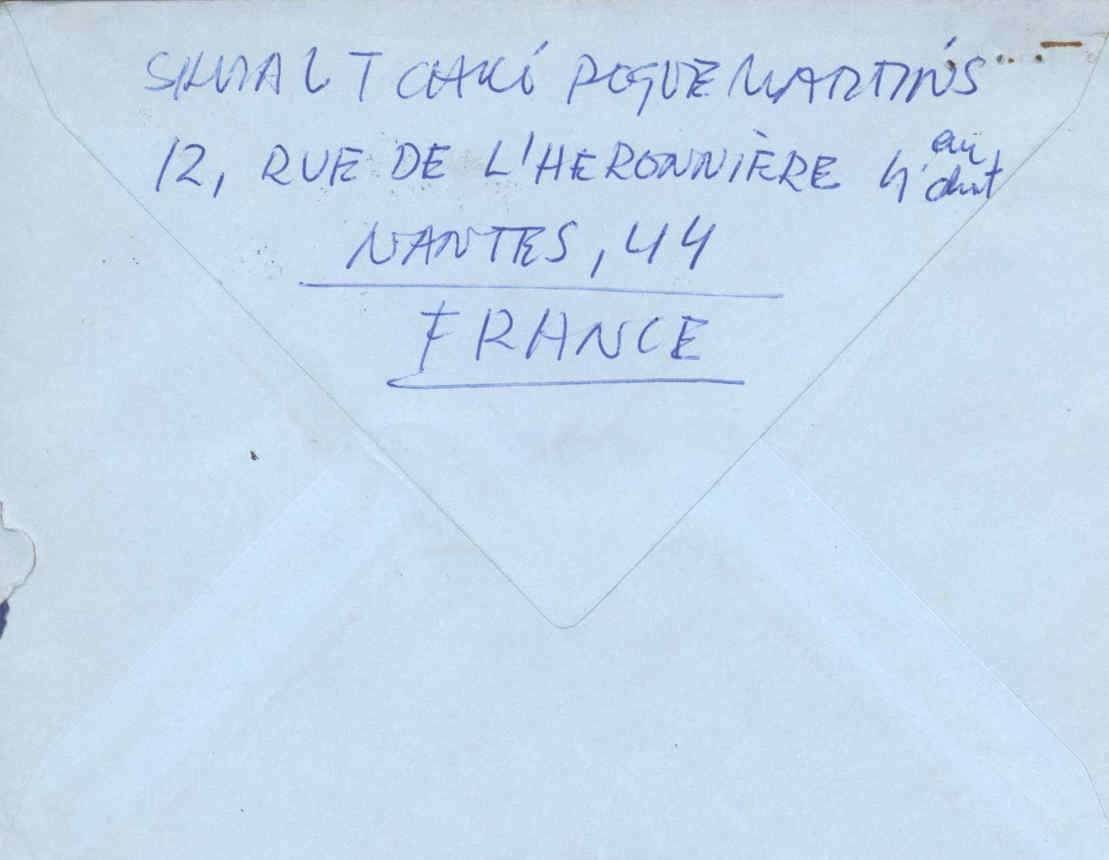 SILVIA L TCHAKÍ ROQUE MARTINS
12, RUE DE L'HERONNIÈRE
NANTES, 44
FRANCE